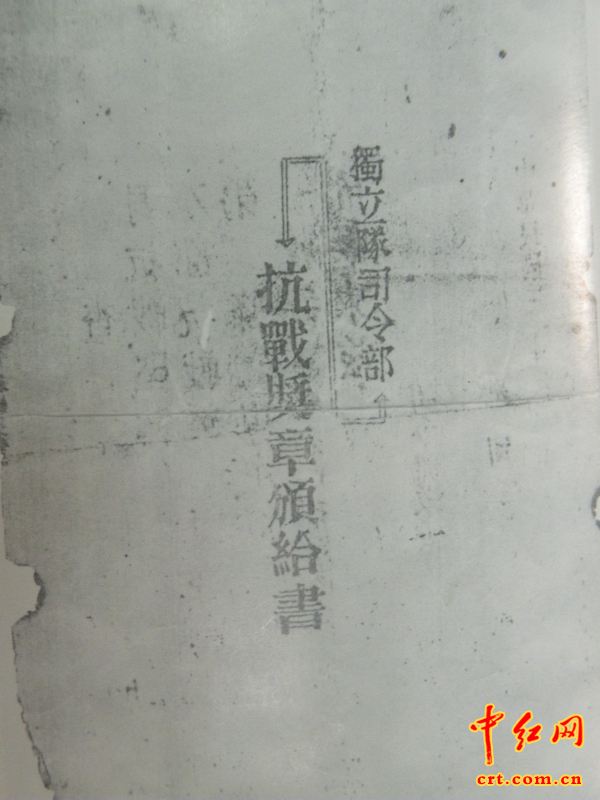 獨立隊司令部
抗戰獎章頒給書
中红网
crt.com.cn